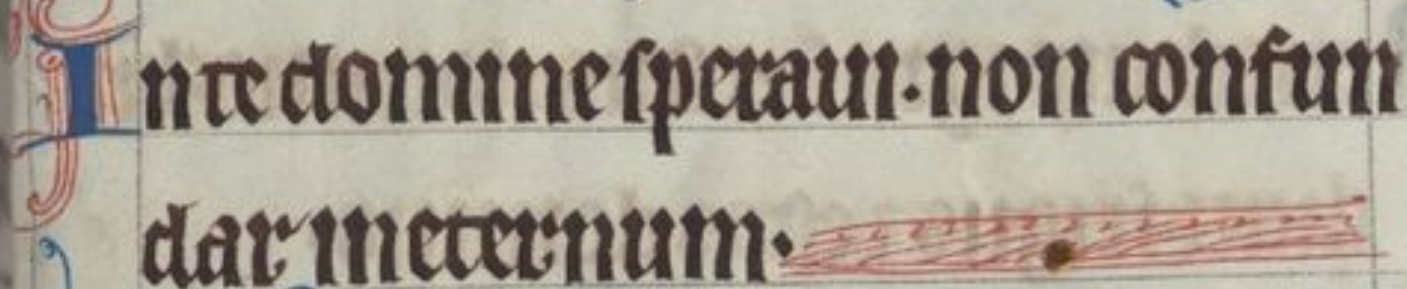 In te domine speraui. non confun
dar in eternum.